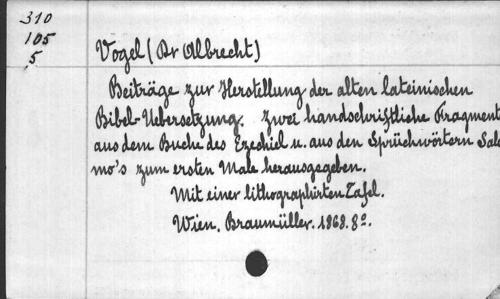 310
105
5
Vogel (Dr Albrecht)
Beiträge zur Herstellung der alten lateinischen
Bibel-Uebersetzung. Zwei handschriftliche Fragment
aus dem Buche des Ezechiel u. aus den Sprüchwörtern Salo
mo's zum ersten Male herausgegeben.
Mit einer lithographirten Tafel.
Wien, Braumüller. 1868. 8º.